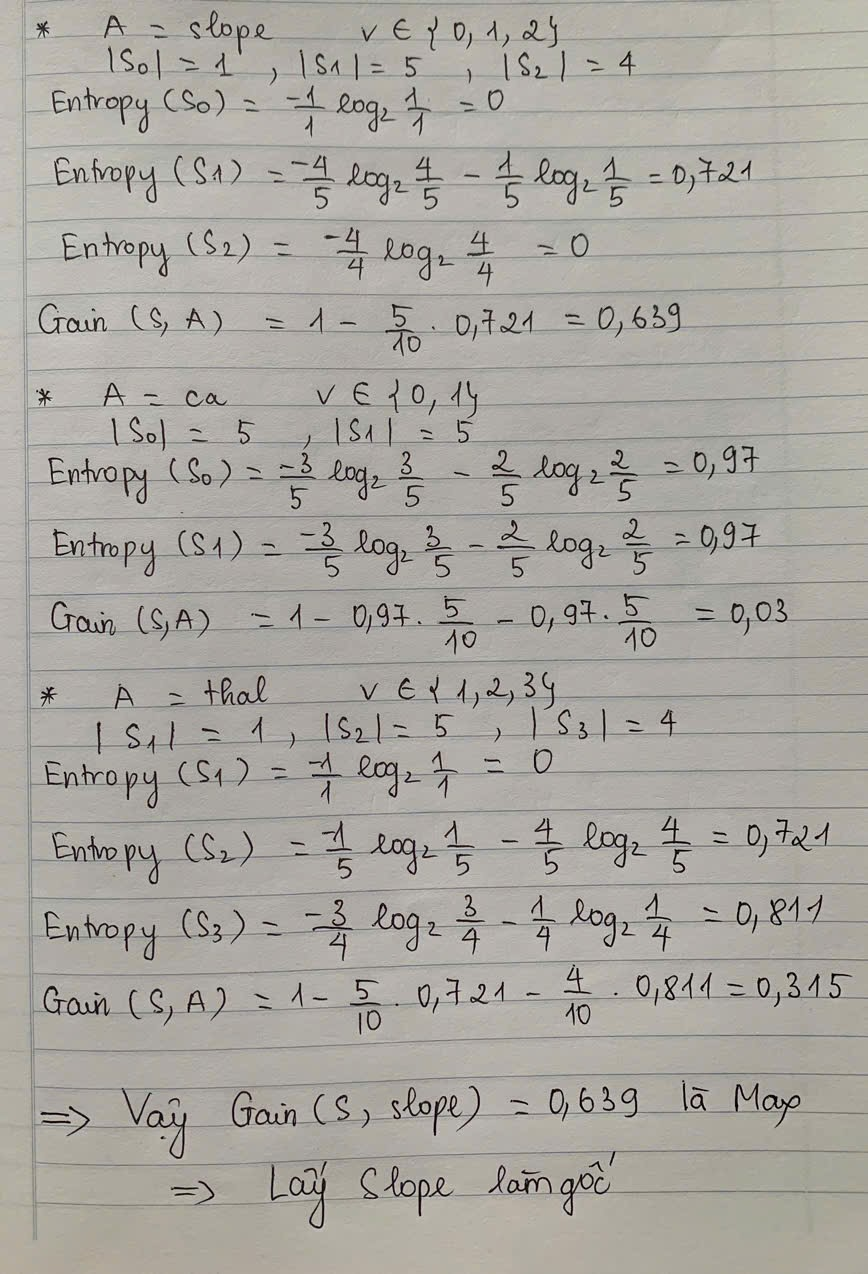 * A = slope v ∈ {0, 1, 2}
|S₀| = 1 , |S1| = 5 , |S₂| = 4
Entropy (S₀) = -1/1 log₂ 1/1 = 0
Entropy (S1) = -4/5 log₂ 4/5 - 1/5 log₂ 1/5 = 0,721
Entropy (S₂) = -4/4 log₂ 4/4 = 0
Gain (S, A) = 1 - 5/10 . 0,721 = 0,639
* A = ca v ∈ {0, 1}
|S₀| = 5 , |S1| = 5
Entropy (S₀) = -3/5 log₂ 3/5 - 2/5 log₂ 2/5 = 0,97
Entropy (S1) = -3/5 log₂ 3/5 - 2/5 log₂ 2/5 = 0,97
Gain (S,A) = 1 - 0,97 . 5/10 - 0,97 . 5/10 = 0,03
* A = thal v ∈ {1, 2, 3}
|S₁| = 1 , |S₂| = 5 , |S₃| = 4
Entropy (S1) = -1/1 log₂ 1/1 = 0
Entropy (S₂) = -1/5 log₂ 1/5 - 4/5 log₂ 4/5 = 0,721
Entropy (S₃) = -3/4 log₂ 3/4 - 1/4 log₂ 1/4 = 0,811
Gain (S, A) = 1 - 5/10 . 0,721 - 4/10 . 0,811 = 0,315
=> Vậy Gain (S, slope) = 0,639 là Max
=> Lấy Slope làm gốc